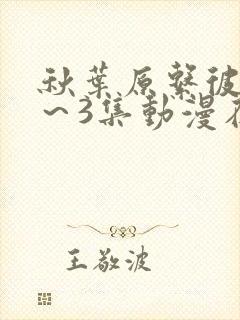 秋葉原繫彼
~3集動漫在
王敬波